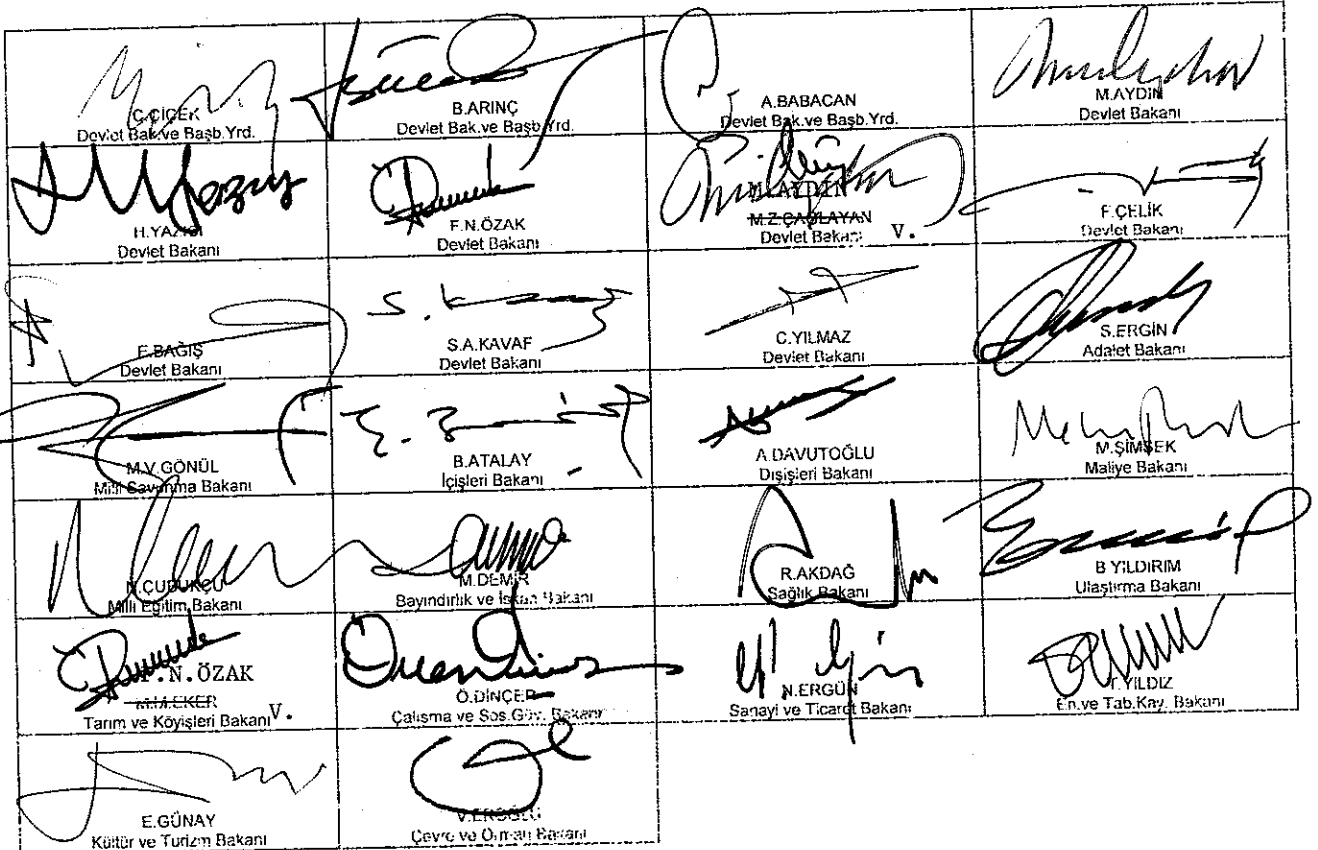 C.ÇİÇEK
Devlet Bak.ve Başb.Yrd.
B.ARINÇ
Devlet Bak.ve Başb.Yrd.
A.BABACAN
Devlet Bak.ve Başb.Yrd.
M.AYDIN
Devlet Bakanı
H.YAZICI
Devlet Bakanı
F.N.ÖZAK
Devlet Bakanı
M.AYDIN
M.Z.ÇAĞLAYAN
Devlet Bakanı V.
F.ÇELİK
Devlet Bakanı
E.BAĞIŞ
Devlet Bakanı
S.A.KAVAF
Devlet Bakanı
C.YILMAZ
Devlet Bakanı
S.ERGİN
Adalet Bakanı
M.V.GÖNÜL
Milli Savunma Bakanı
B.ATALAY
İçişleri Bakanı
A.DAVUTOĞLU
Dışişleri Bakanı
M.ŞİMŞEK
Maliye Bakanı
N.ÇUBUKÇU
Milli Eğitim Bakanı
M.DEMİR
Bayındırlık ve İskan Bakanı
R.AKDAĞ
Sağlık Bakanı
B.YILDIRIM
Ulaştırma Bakanı
F.N.ÖZAK
M.M.EKER
Tarım ve Köyişleri Bakanı V.
Ö.DİNÇER
Çalışma ve Sos.Güv. Bakanı
N.ERGÜN
Sanayi ve Ticaret Bakanı
T.YILDIZ
En.ve Tab.Kay. Bakanı
E.GÜNAY
Kültür ve Turizm Bakanı
V.EROĞLU
Çevre ve Orman Bakanı